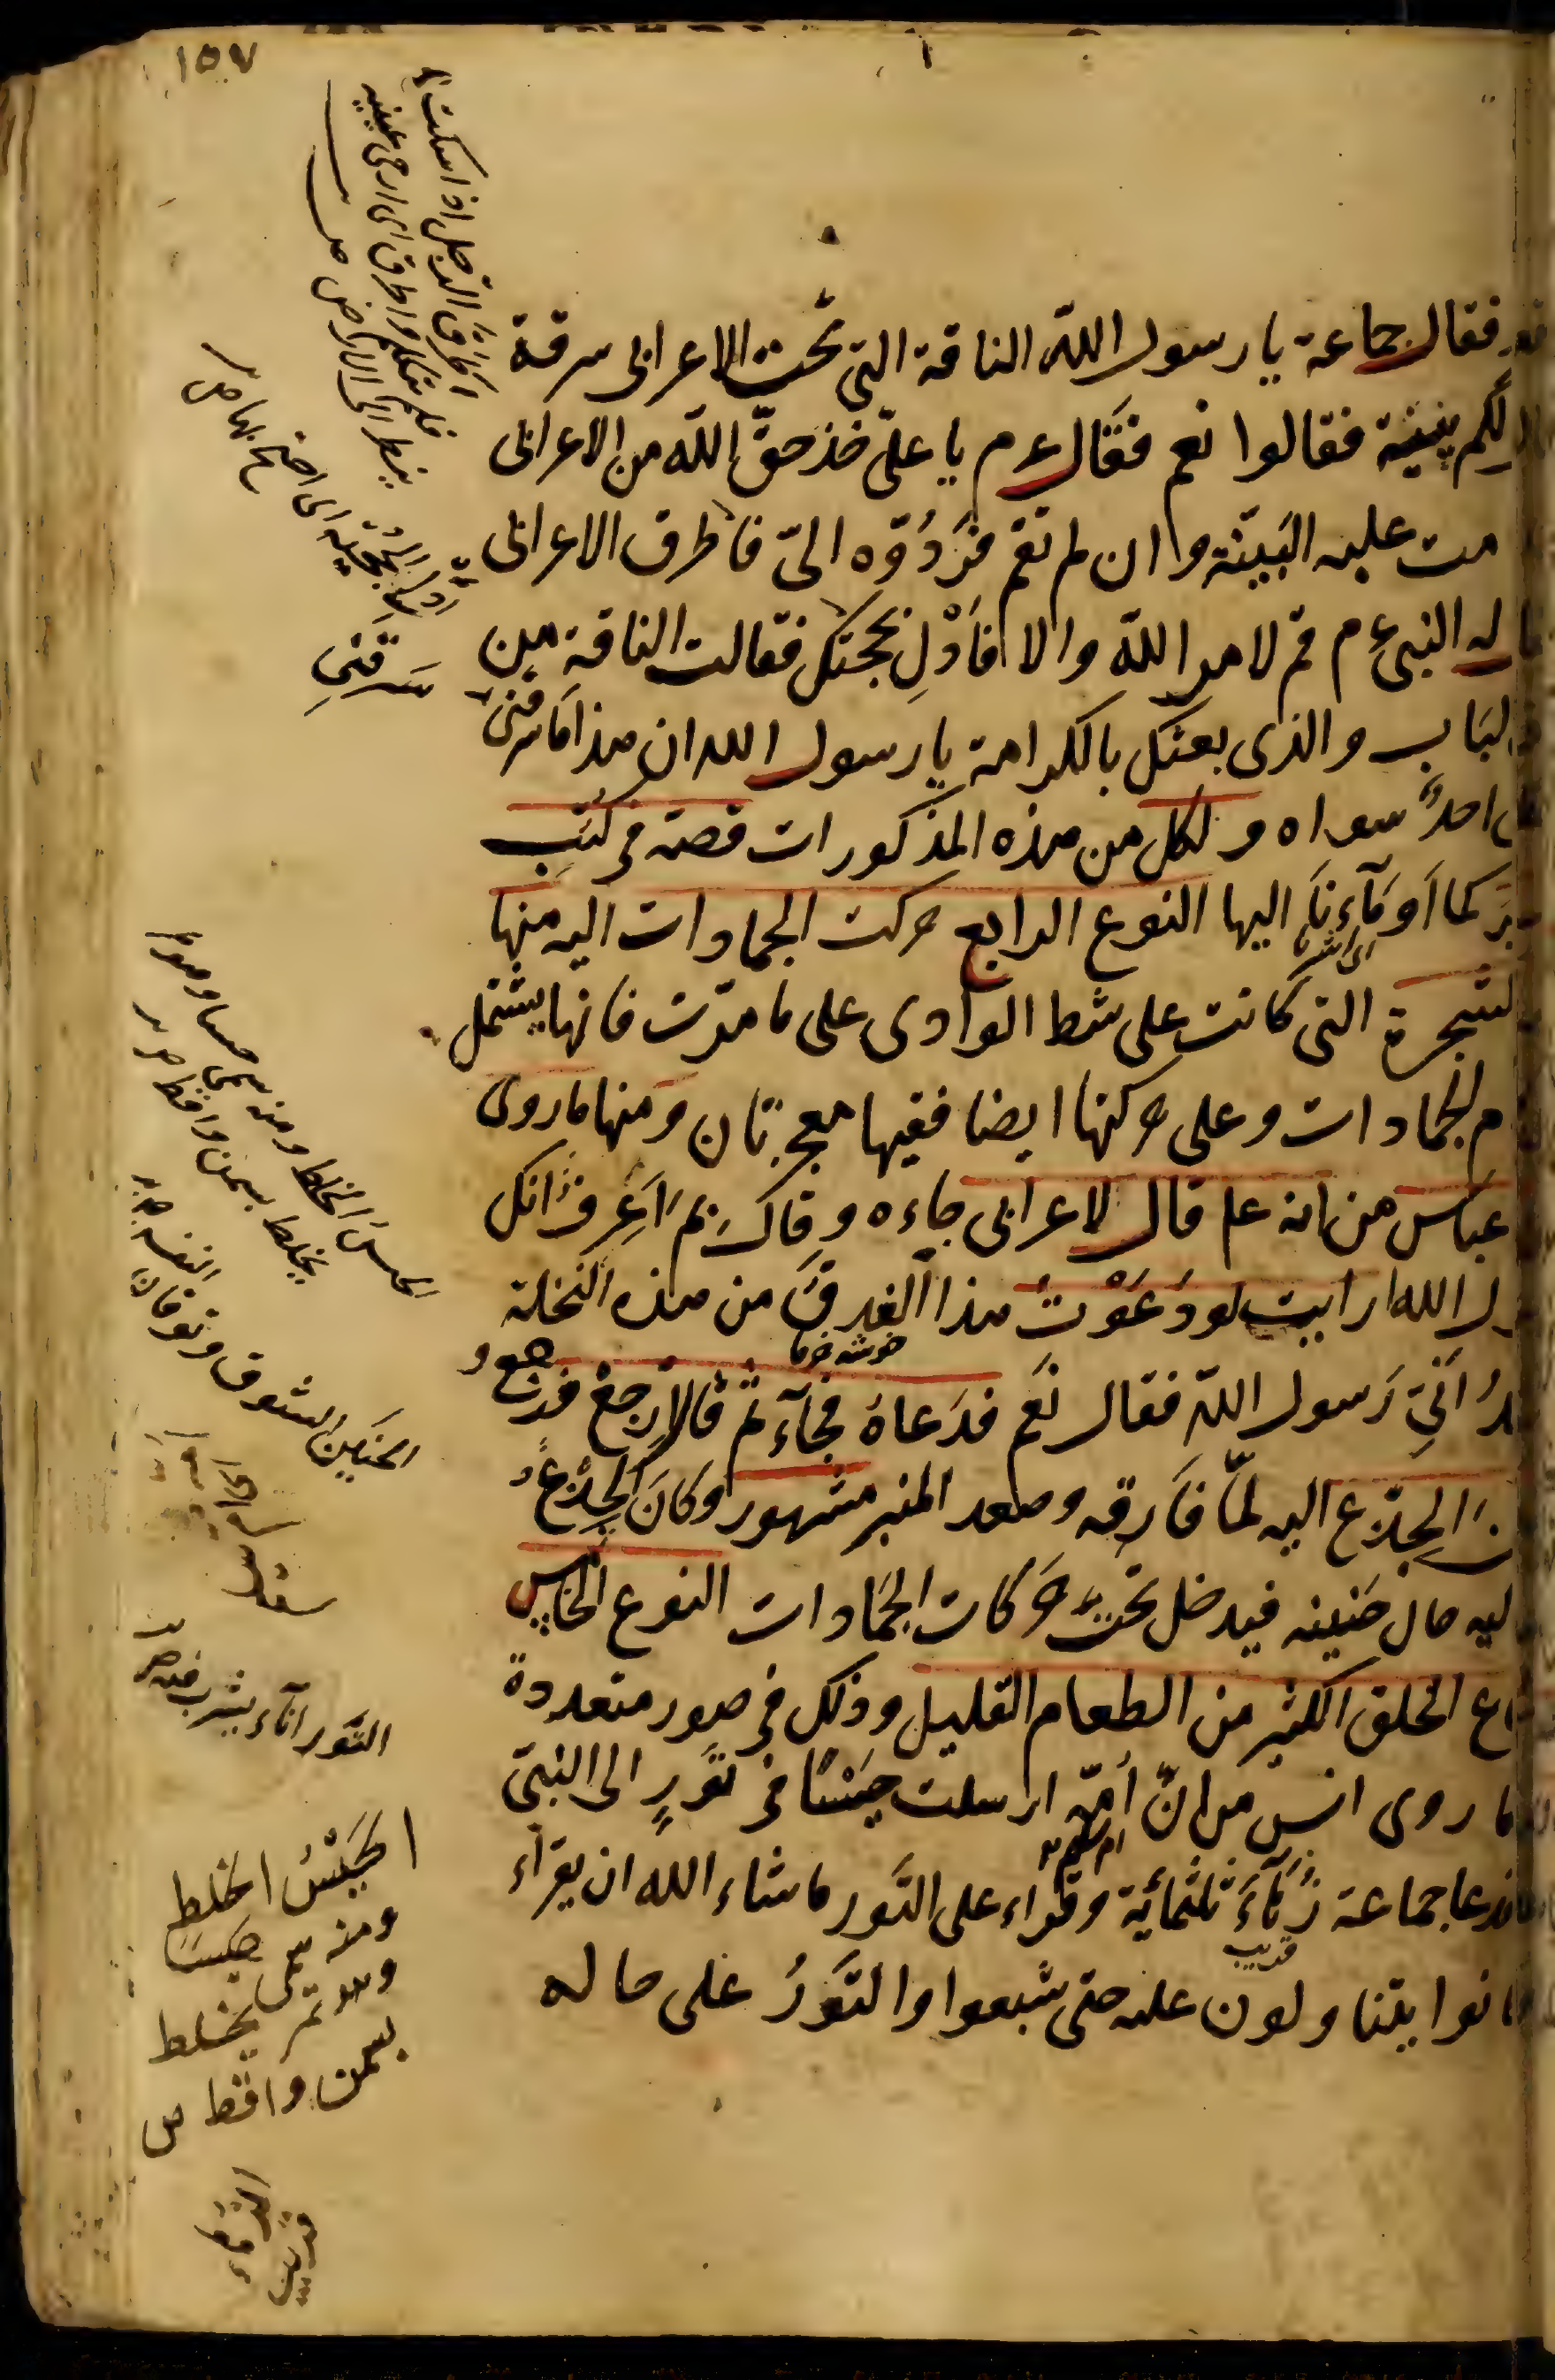 ١٥٧
فقال جماعة يا رسول الله الناقة التى تحت الاعرابى سرقة
لكم بينية فقالوا نعم فقال عم يا علىّ خذ حقّ الله من الاعرابى
مت عليه البَيّنة وان لم تقم فردُوّه الىّ فاطرق الاعرابى
له النبى عم قم لامر الله والا فَادْلِ بحجتك فقالت الناقة من
لبَاب والذى بعثك بالكرامة يا رسول الله ان هذا مَا سرقنى
احدٌ سواه ولكل من هذه المذكورات قصة فى كتب
كما اَومَآءنَا اليها النوع الرابع حركت الجمادات اليه منها
اى اشرنا
لشجرة التى كانت على شط الوادى على ما مرّت فانها يشتمل
م الجمادات وعلى حركتها ايضا ففيها معجزتان ومنها ما روى
عباس من انه عم قال لاعرابى جاءه وقال بم اَعرِفُ انك
ل الله ارايت لو دَعَوْتُ هذا الغدقَ من هذه النخلة
خوشه خرما
اَنّى رَسول الله فقال نَعم فدَعاهُ فجآء ثم قال ارجع فرجع و
الجِذع اليه لمّا فَارقه وصعد المنبر مشهور وكانَ الجِذعُ
ليه حال حَنينه فيدخل تحت حَركات الجَمادات النوع الخامس
اع الخلق الكثير من الطعام القليل وذلك فى صور متعددة
ما روى انس من انّ اُمّه ارسلت حَيْسًا فى تَورٍ الى النبىّ
ام سليم
فدعا جماعة زُهَآءَ ثلثمائة وقراء على التَور ما شاء الله ان يقراء
قريب
انوا يتناولون عليه حتى شبعوا والتَورُ على حاله
اَطرَقَ الرجل اذا سكت
فلم يتكلم واطرق اى ارخى عينيه
ينظر الى الارض ص
بحجته اى احتج بها ص
سَرقَنِى
الحيسُ الخلط ومنه سمى حيسا وهو تمر
يخلط بسمن واقط ص
الحَنين الشوق وتوقان النفس ص
التَور اناء يشرب فيه ص
الحَيْسُ الخلط
ومنه سمى حَيسًا
وهو تمر يخلط
بسمن واقط ص
الزُهَاء
قريب